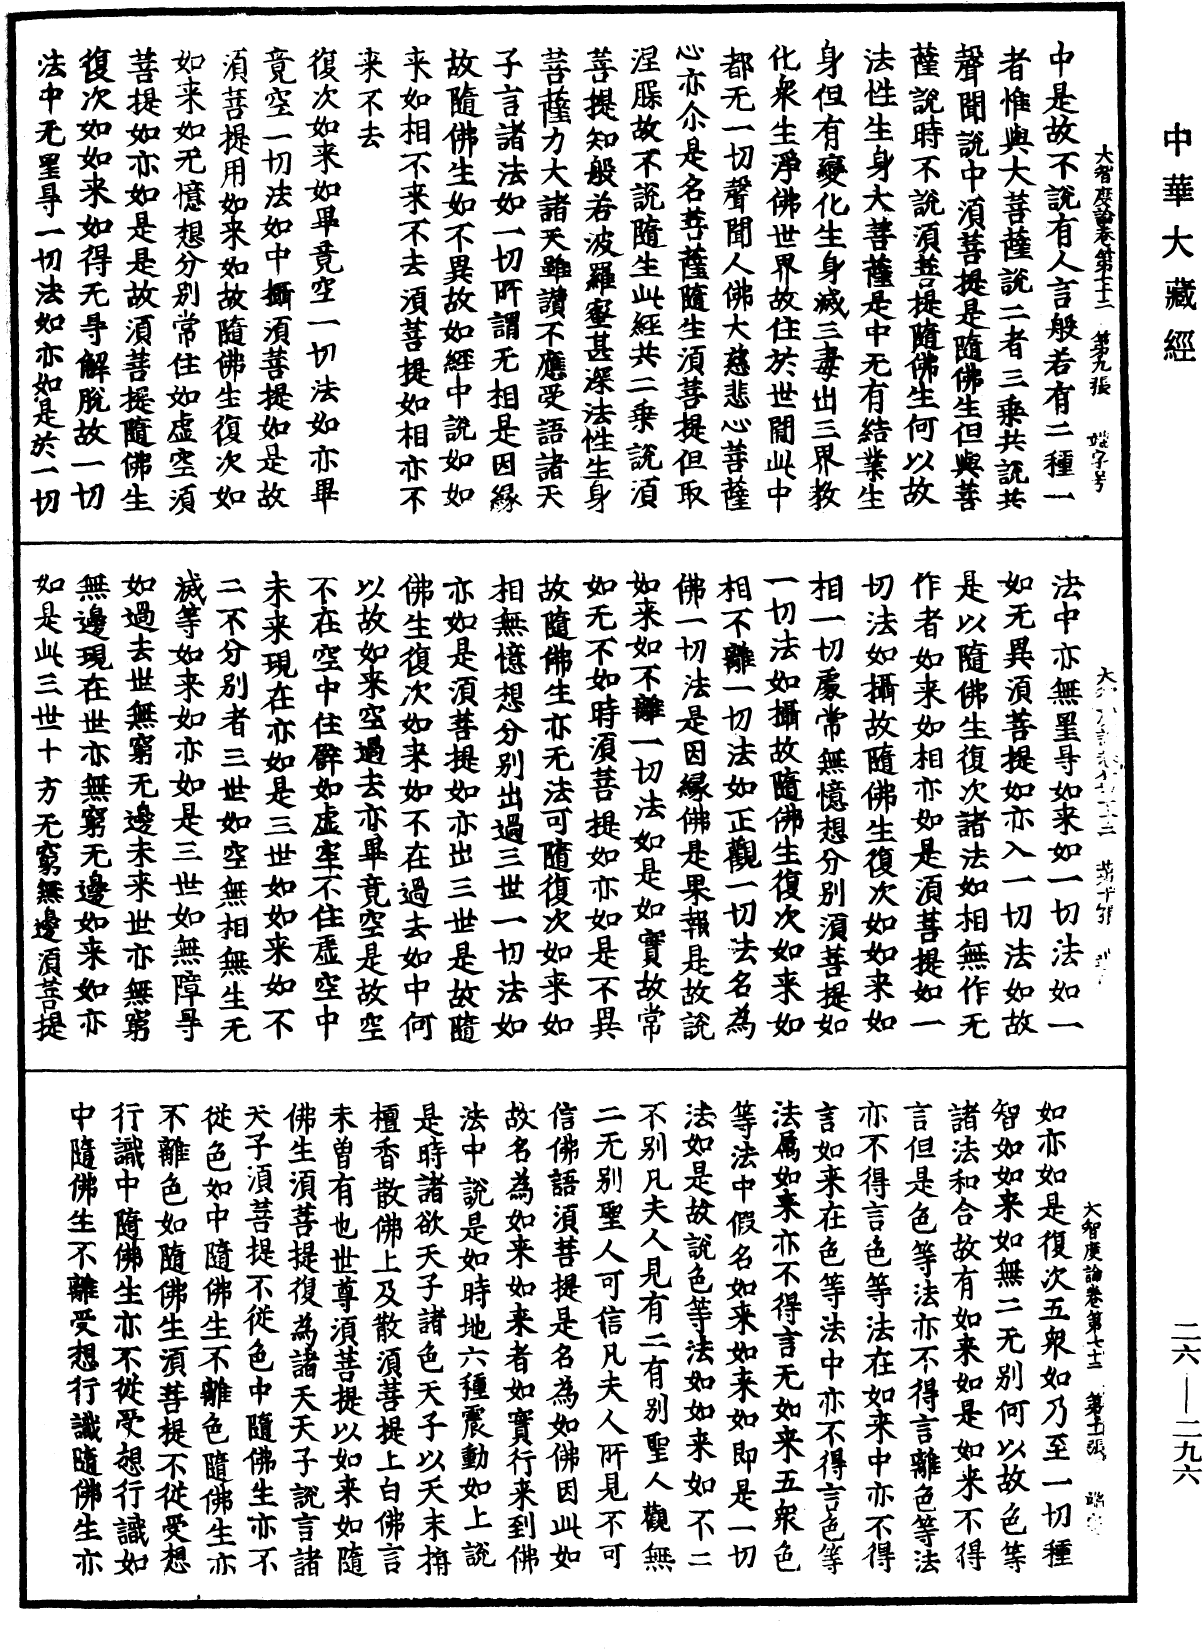 中華大藏經
中是故不說有人言般若有二種一
者惟與大菩薩說二者三乘共說共
聲聞說中須菩提是隨佛生但與菩
薩說時不說須菩提隨佛生何以故
法性生身大菩薩是中无有結業生
身但有變化生身滅三毒出三界教
化衆生淨佛世界故住於世間此中
都无一切聲聞人佛大慈悲心菩薩
心亦尒是名菩薩隨生須菩提但取
涅槃故不說隨生此經共二乘說須
菩提知般若波羅蜜甚深法性生身
菩薩力大諸天雖讚不應受語諸天
子言諸法如一切所謂无相是因緣
故隨佛生如不異故如經中說如如
来如相不来不去須菩提如相亦不
来不去
復次如来如畢竟空一切法如亦畢
竟空一切法如中攝須菩提如是故
須菩提用如来如故隨佛生復次如
如来如无憶想分別常住如虛空須
菩提如亦如是是故須菩提隨佛生
復次如如来如得无㝵解脫故一切
法中无罣㝵一切法如亦如是於一切
法中亦無罣㝵如来如一切法如一
如无異須菩提如亦入一切法如故
是以隨佛生復次諸法如相無作无
作者如来如相亦如是須菩提如一
切法如攝故隨佛生復次如如来如
相一切處常無憶想分別須菩提如
一切法如攝故隨佛生復次如来如
相不離一切法如正觀一切法名為
佛一切法是因緣佛是果報是故說
如来如不離一切法如是如實故常
如无不如時須菩提如亦如是不異
故隨佛生亦无法可隨復次如来如
相無憶想分別出過三世一切法如
亦如是須菩提如亦出三世是故隨
佛生復次如来如不在過去如中何
以故如来空過去亦畢竟空是故空
不在空中住譬如虛空不住虛空中
未来現在亦如是三世如如来如不
二不分別者三世如空無相無生无
滅等如来如亦如是三世如無障㝵
如過去世無窮无邊未来世亦無窮
無邊現在世亦無窮无邊如来如亦
如是此三世十方无窮無邊須菩提
大智度論卷第七十二 第十一張
如亦如是復次五衆如乃至一切種
智如如来如無二无別何以故色等
諸法和合故有如来如是如来不得
言但是色等法亦不得言離色等法
亦不得言色等法在如来中亦不得
言如来在色等法中亦不得言色等
法屬如来亦不得言无如来五衆色
等法中假名如来如来如即是一切
法如是故說色等法如如来如不二
不別凡夫人見有二有別聖人觀無
二无別聖人可信凡夫人所見不可
信佛語須菩提是名為如佛因此如
故名為如来如来者如實行来到佛
法中說是如時地六種震動如上說
是時諸欲天子諸色天子以天末栴
檀香散佛上及散須菩提上白佛言
未曾有也世尊須菩提以如来如隨
佛生須菩提復為諸天天子說言諸
天子須菩提不從色中隨佛生亦不
從色如中隨佛生不離色隨佛生亦
不離色如隨佛生須菩提不從受想
行識中隨佛生亦不從受想行識如
中隨佛生不離受想行識隨佛生亦
二六——二九六